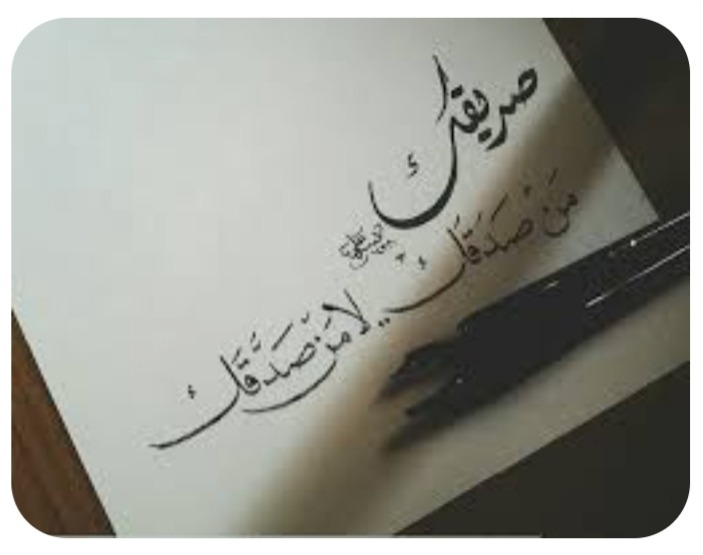 صديقك
مَنْ صَدَقَكْ
..لا مَنْ صَدَّقَكَ